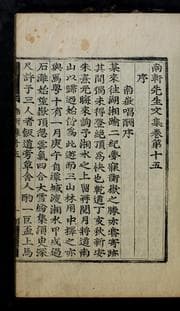 南軒先生文集卷第十五
序
南嶽唱酬序
某來往湖湘踰二紀夢寐衡嶽之勝亦嘗寄跡
其間獨未得登絕頂為快也乾道丁亥秋新安
朱熹元晦來訪予湘水之上留再閱月將道南
山以歸迺始偕為此遊而三山林用中擇之亦
與焉粤十有一月庚午自潭城渡湘水甲戌過
石灘始望嶽頂忽雲氣四合大雪紛集須臾深
尺許予三人者飯道旁草舍人酌一巨盃上馬